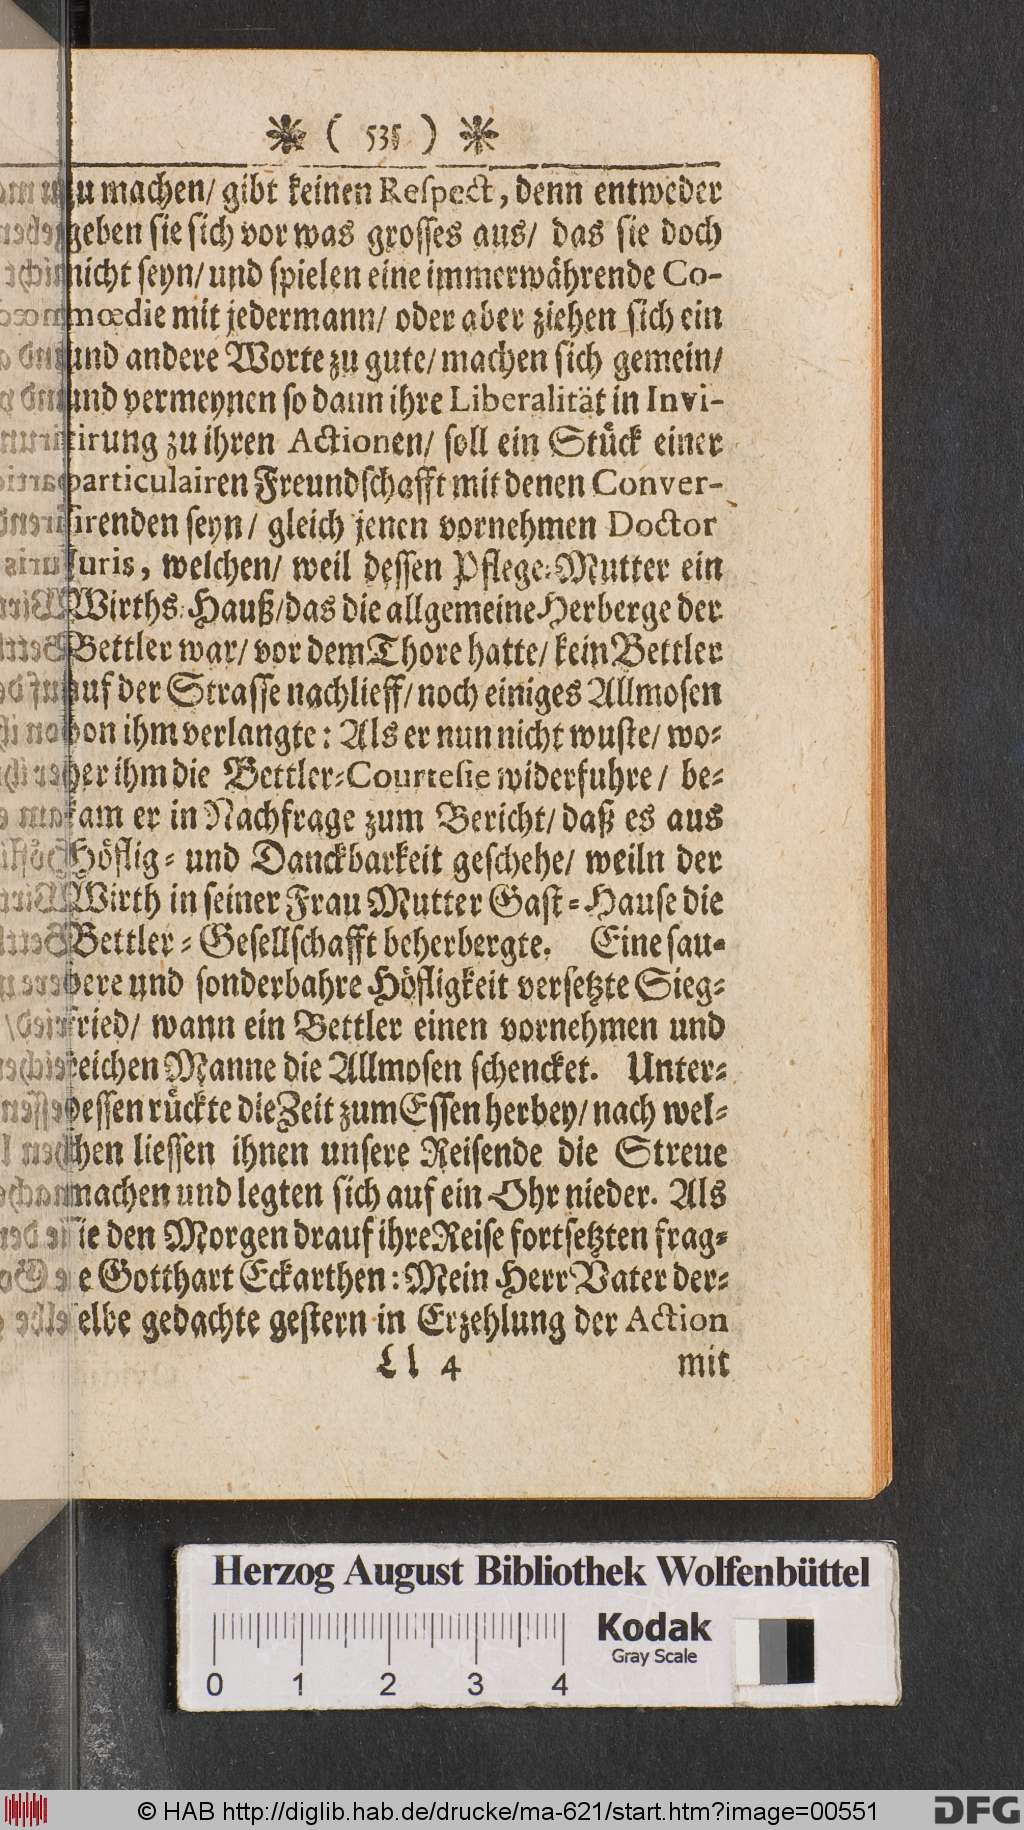 ( 535 )
zu machen/ gibt keinen Respect, denn entweder
geben sie sich vor was grosses aus/ das sie doch
nicht seyn/ und spielen eine immerwährende Co-
mœdie mit jedermann/ oder aber ziehen sich ein
und andere Worte zu gute/ machen sich gemein/
und vermeynen so dann ihre Liberalität in Invi-
tirung zu ihren Actionen/ soll ein Stück einer
particulairen Freundschafft mit denen Conver-
sirenden seyn/ gleich jenen vornehmen Doctor
Juris, welchen/ weil dessen Pflege-Mutter ein
Wirths-Hauß/ das die allgemeine Herberge der
Bettler war/ vor dem Thore hatte/ kein Bettler
auf der Strasse nachlieff/ noch einiges Allmosen
von ihm verlangte: Als er nun nicht wuste/ wo-
her ihm die Bettler-Courtesie widerfuhre/ be-
kam er in Nachfrage zum Bericht/ daß es aus
Höflig- und Danckbarkeit geschehe/ weiln der
Wirth in seiner Frau Mutter Gast-Hause die
Bettler-Gesellschafft beherbergte. Eine sau-
bere und sonderbahre Höfligkeit versetzte Sieg-
fried/ wann ein Bettler einen vornehmen und
reichen Manne die Allmosen schencket. Unter-
dessen rückte die Zeit zum Essen herbey/ nach wel-
chen liessen ihnen unsere Reisende die Streue
machen und legten sich auf ein Ohr nieder. Als
sie den Morgen drauf ihre Reise fortsetzten frag-
te Gotthart Eckarthen: Mein Herr Vater der-
selbe gedachte gestern in Erzehlung der Action
Ll 4 mit
Herzog August Bibliothek Wolfenbüttel
Kodak
Gray Scale
0 1 2 3 4
© HAB http://diglib.hab.de/drucke/ma-621/start.htm?image=00551
DFG